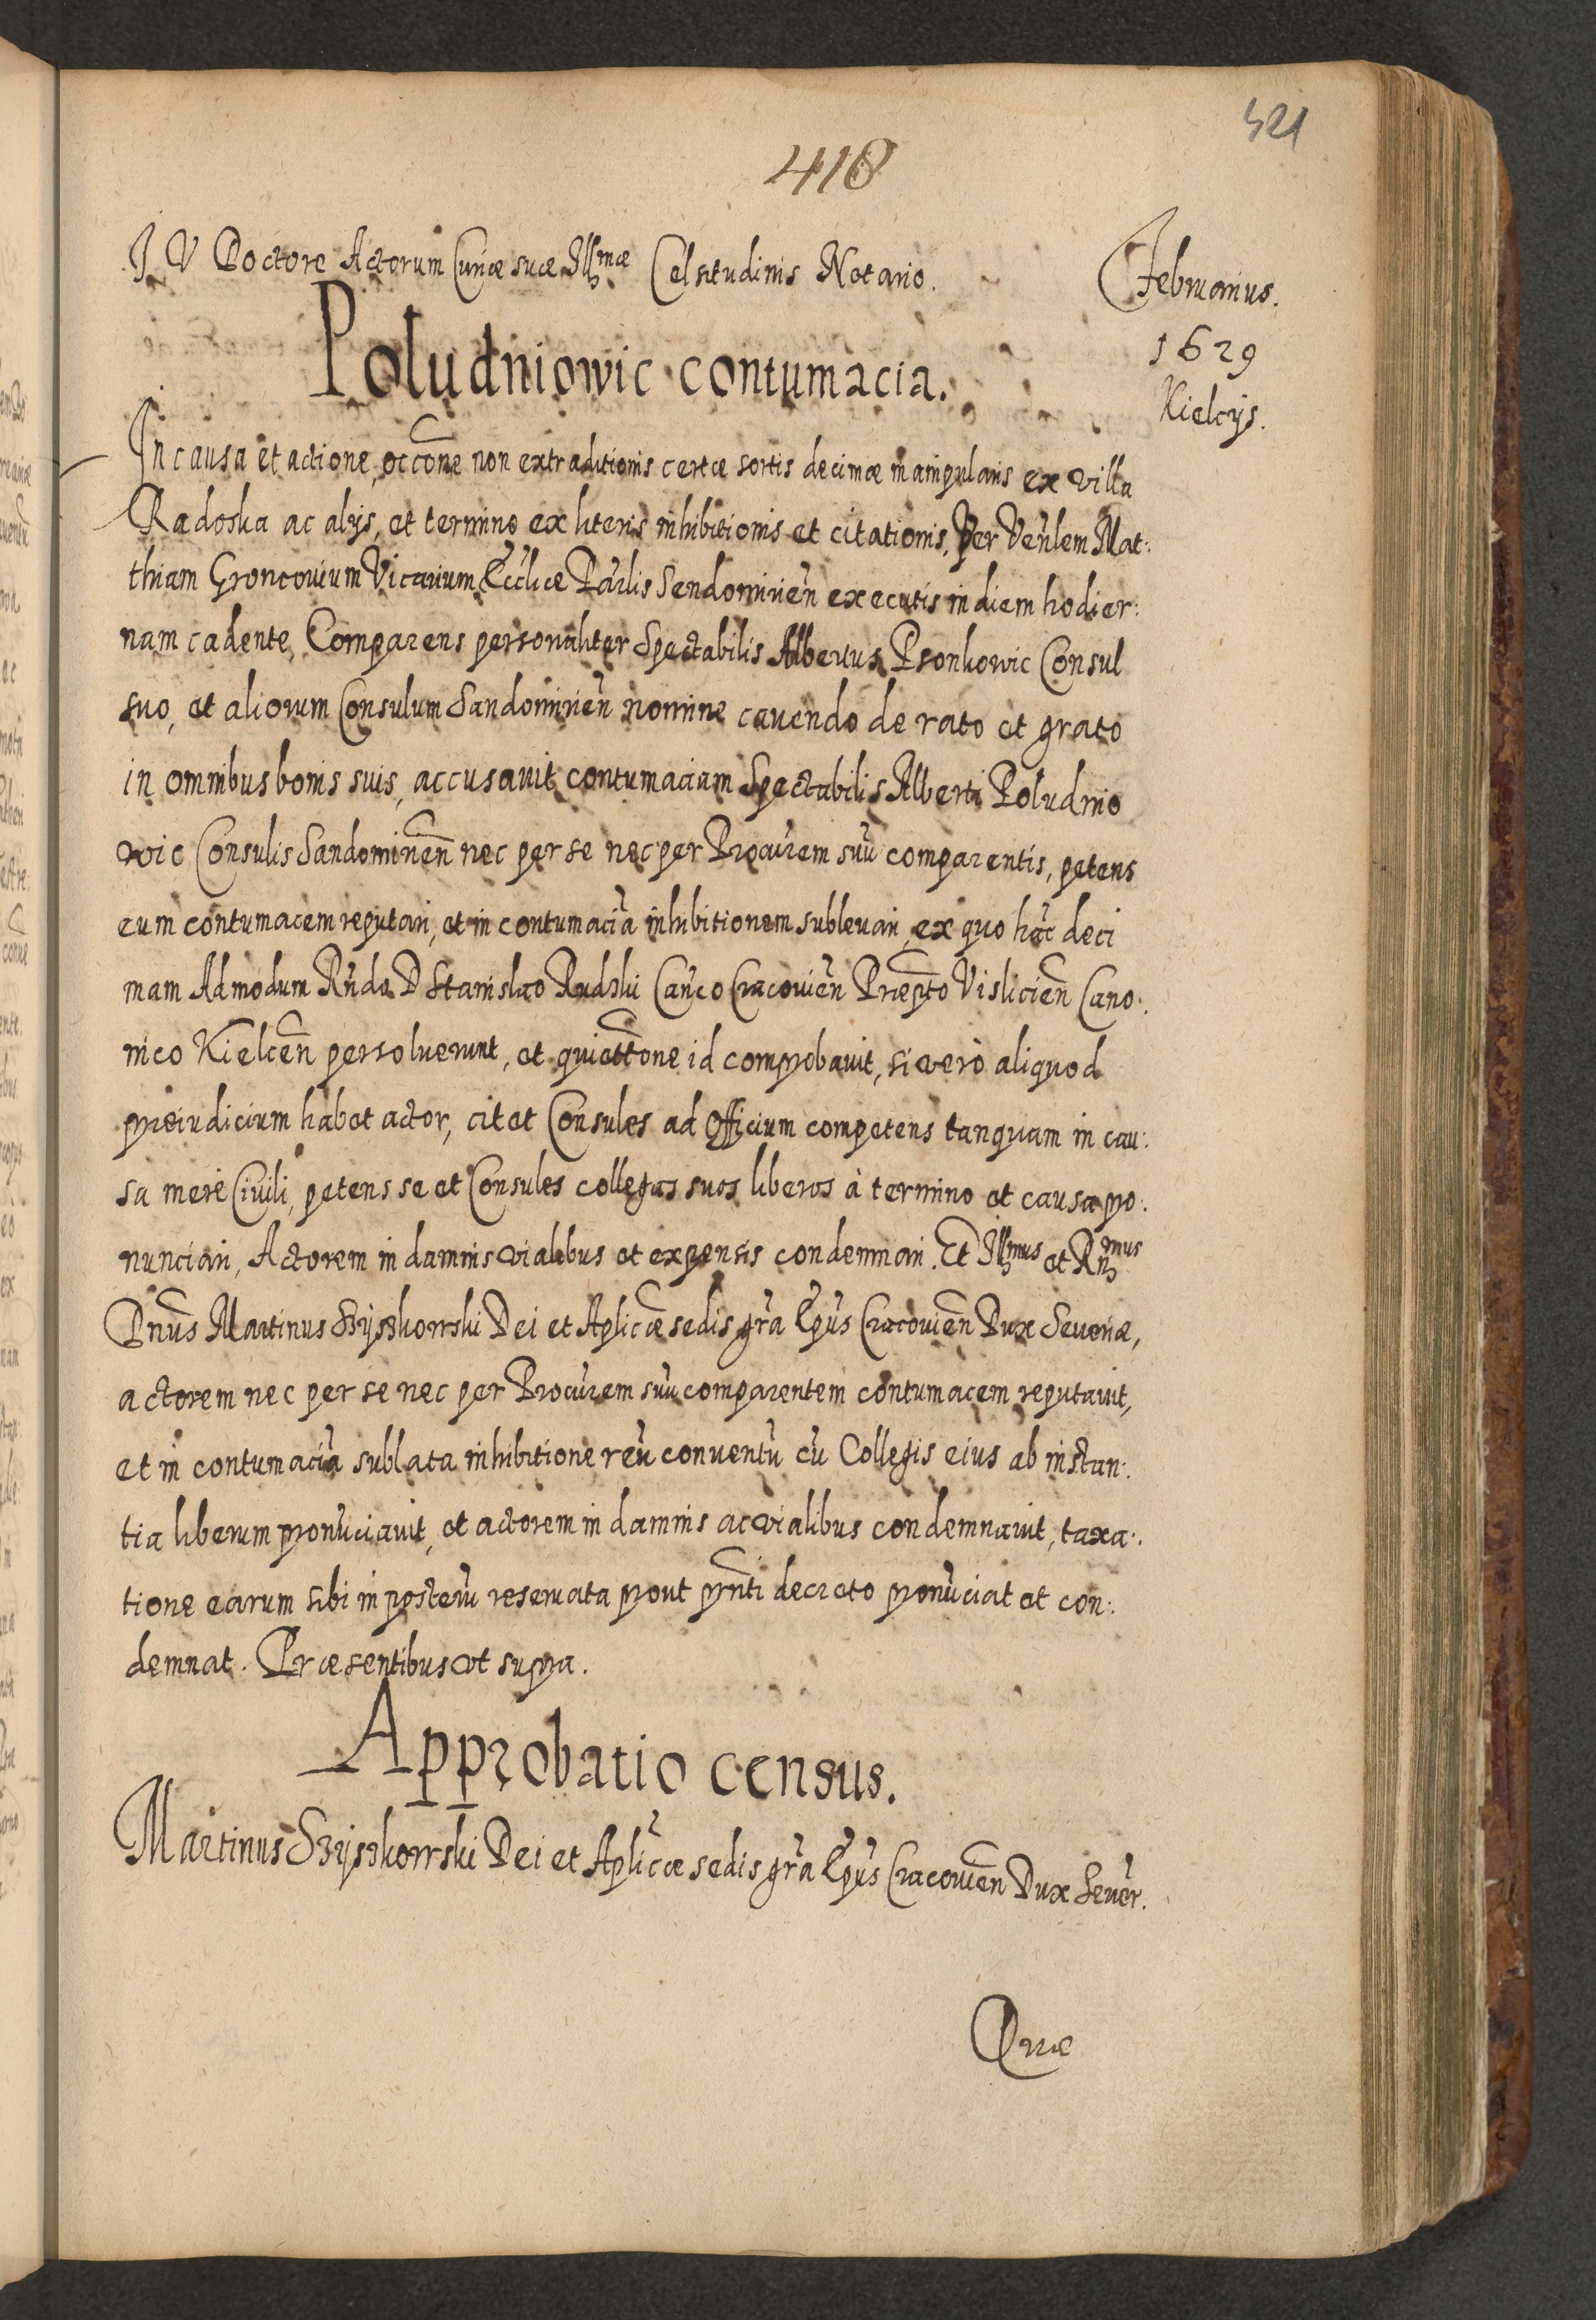 521
418
J V Doctore Actorum Curiæ suæ Illmæ Celsitudinis Notario.
Februarius.
1629
Kielcijs.
Poludniowic contumacia.
In causa et actione, occōne non extraditionis certæ sortis decimæ manipularis ex villa
Radoska ac alijs, et termino ex literis inhibitionis et citationis, Per Venlem Mat:
thiam Groncovium Vicarium Eccliæ Parlis Sendomirien executis in diem hodier:
nam cadente, Comparens personaliter Spectabilis Albertus Psonkowic Consul
suo, et aliorum Consulum Sandomirien nomine cavendo de rato et grato
in omnibus bonis suis, accusavit contumaciam Spectabilis Alberti Poludnio
wic Consulis Sandominen nec per se nec per Procurem suū comparentis, petens
eum contumacem reputari, et in contumaciā inhibitionem sublevari, ex quo hāc deci
mam Admodum Rndo D Stanislao Rudski Canco Cracovien Præpto Vislicien Cano:
nico Kielcen persolverunt, et quiettōne id comprobavit, si verò aliquod
præiudicium habet actor, citet Consules ad Officium competens tanquam in cau:
sa merè Civili, petens se et Consules collegas suos liberos à termino et causa pro:
nunciari, Actorem in damnis vialibus et expensis condemnari. Et Illmus et Rnmus
Dnus Martinus Szyszkowski Dei et Aplicæ sedis gra Epus Cracovien Dux Severiæ,
actorem nec per se nec per Procurem suū comparentem contumacem reputavit,
et in contumaciā sublata inhibitione reū conventū cū Collegis eius ab instan:
tia liberum pronūciavit, et actorem in damnis ac vialibus condemnavit, taxa:
tione earum sibi in posterū reservata prout pnti decreto pronūciat et con:
demnat. Præsentibus vt supra.
Approbatio census.
Martinus Szyszkowski Dei et Aplicæ sedis gra Epus Cracovien Dux Sever.
Quæ